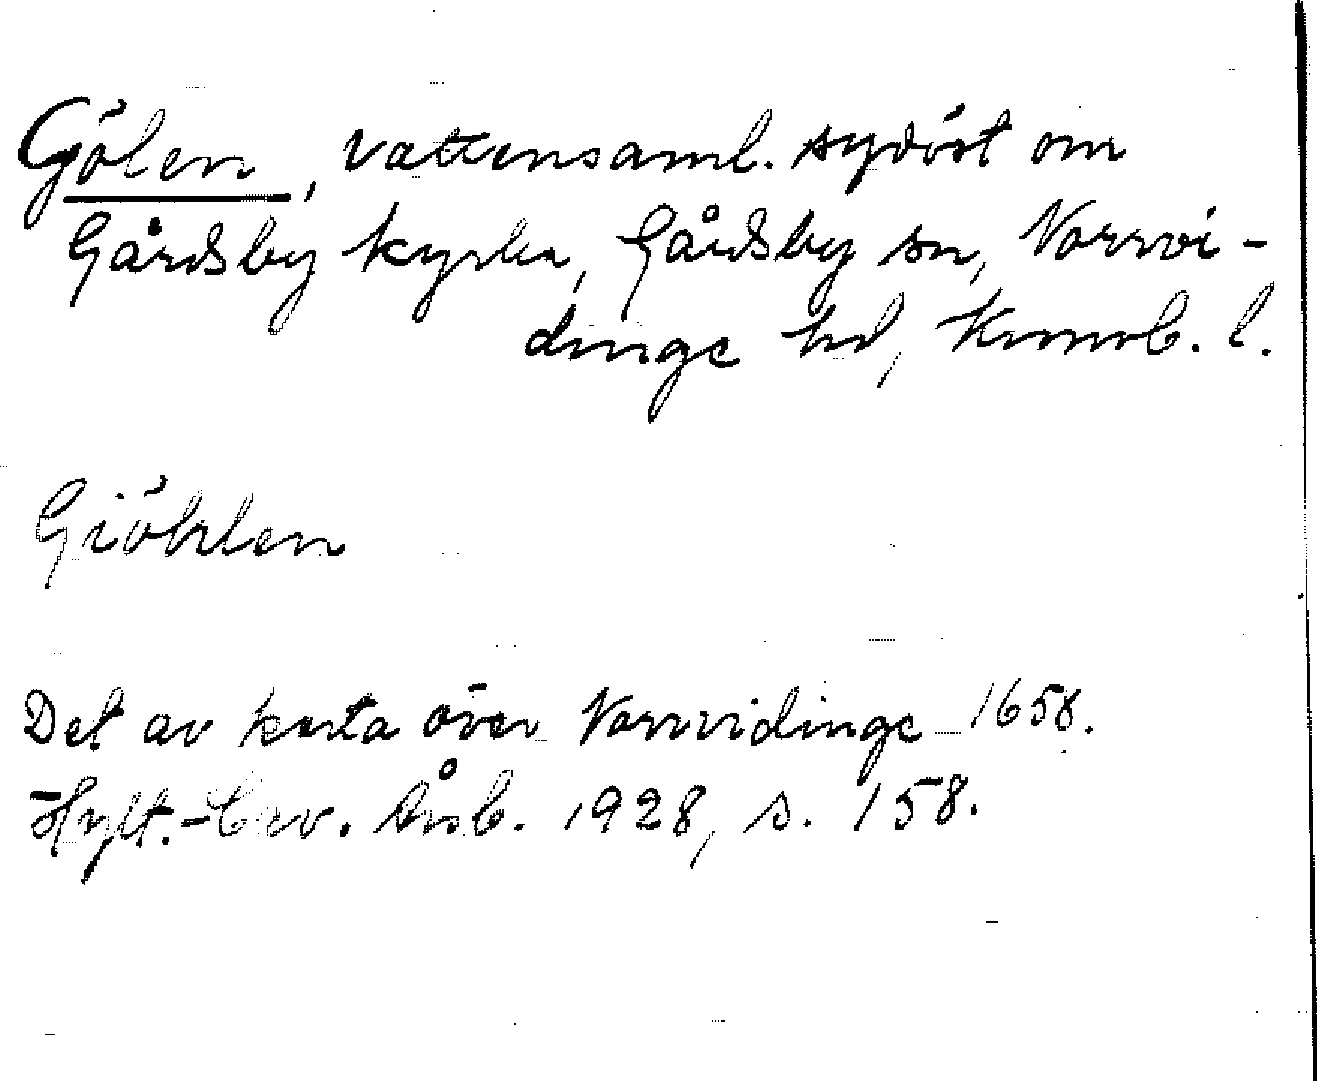 Gölen, vattensaml. sydöst om
Gårdsby kyrka, Gårdsby sn, Norrvi-
dinge hd, Kronob. l.
Giöhlen
Det av karta över Norrvidinge 1658.
Hylt.-Cav. Årsb. 1928, s. 158.